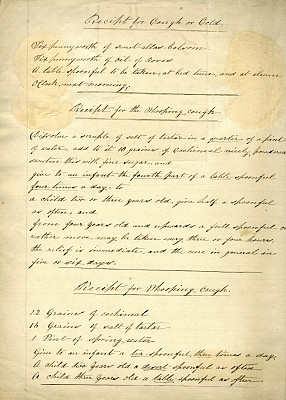 Receipt for Cough or Cold.
Six pennyworth of sweet allas balsom
Six pennyworth of oil of Roses
A table spoonful to be taken, at bed time, and at eleven
O'Clock next morning;
Receipt for the Whooping cough.
Dissolve a scruple of salt of tartar in a quarter of a pint
of water, add to it 10 grains of Cochineal nicely powdered
sweeten this with fine sugar, and
give to an infant the fourth part of a table spoonful
four times a day; to
a child two or three years old, give half a spoonful
as often, and
from four years old and upwards a full spoonful or
rather more may be taken every three or four hours.
the relief is immediate, and the cure in general in
five or six days.
Receipt for Whooping Cough.
12 Grains of cochineal
16 Grains of salt of tartar
1 Pint of spring water
Give to an infant a tea spoonful, three times a day,
A child two Years old a desert spoonful as often
A child three Years old a table spoonful as often